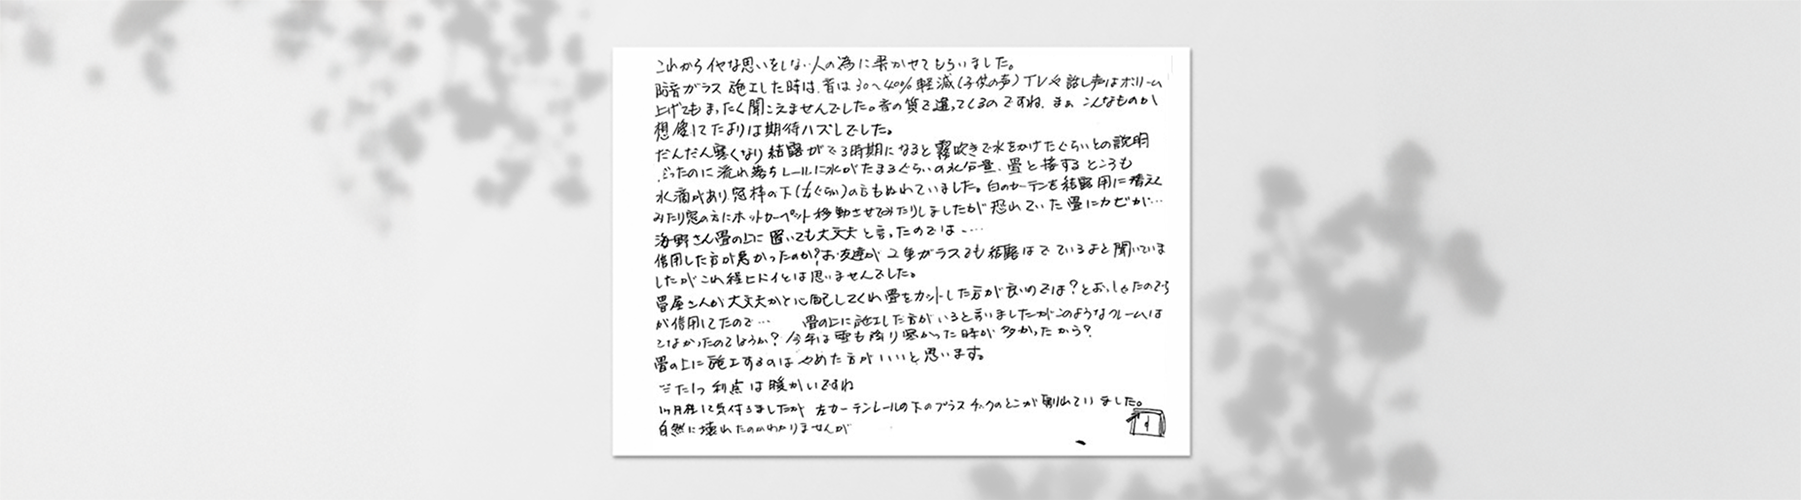 これからイヤな思いをしない人の為に書かせてもらいました。
防音ガラス施工した時は、音は30〜40%軽減(子供の声)TVや話し声はボリーム
上げてもまったく聞こえませんでした。音の質で違ってくるのですね、まぁこんなものか
想像してたよりは期待ハズレでした。
だんだん寒くなり結露がでる時期になると霧吹きで水をかけたぐらいとの説明
だったのに流れ落ちレールに水がたまるぐらいの水分量、畳と接するところも
水滴があり窓枠の下(ぐらい)の方もぬれていました。白のカーテンを結露用に替え
みたり窓の方にホットカーペット移動させてみたりしましたが恐れていた畳にカビが…
海野さん畳の上に置いても大丈夫と言ったのでは…
信用した方が悪かったのか?お友達が2重ガラスでも結露はでているよと聞いていま
したがこれ程ヒドイとは思いませんでした。
畳屋さんが大丈夫かと心配してくれ畳をカットした方が良いのでは?とおっしゃたのですが
が信用してたので… 畳の上に施工した方がいると言いましたがこのようなクレームは
でなかったのでしょうか?今年は雪も降り寒かった時が多かったから?
畳の上に施工するのはやめた方がいいと思います。
ただ1つ利点は暖かいですね
1ヶ月程して気付きましたが 左カーテンレールの下のプラスチックのとこが割れていました。
自然に壊れたのかわかりませんが